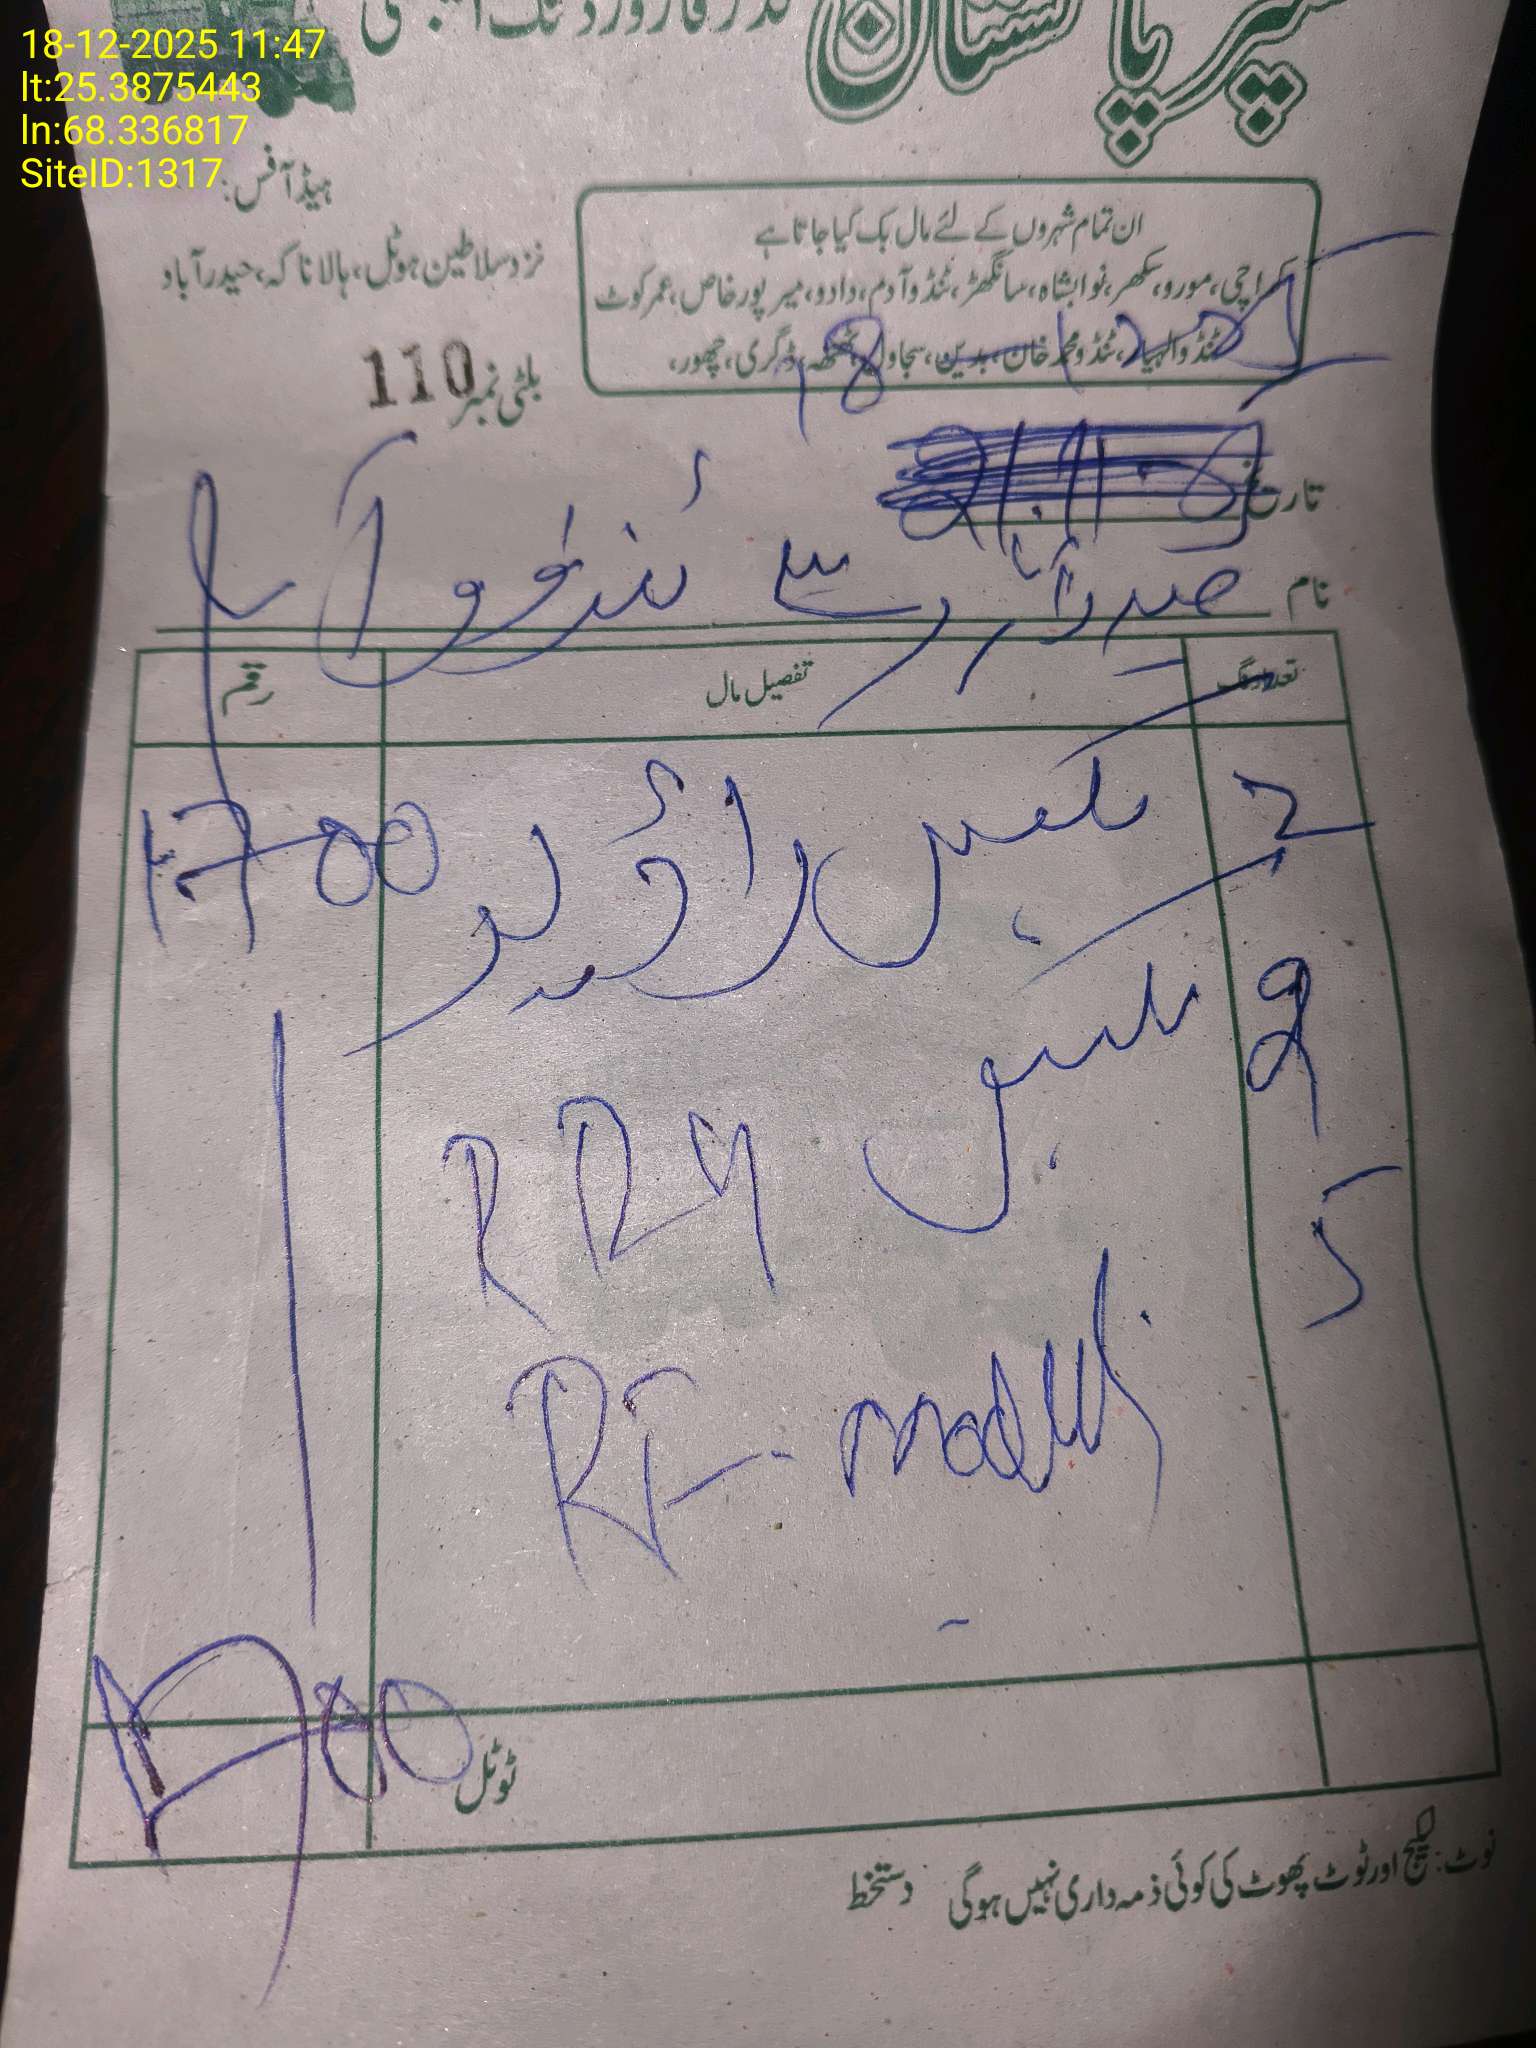 18-12-2025 11:47
lt:25.3875443
ln:68.336817
SiteID:1317
سپر پاکستان
ہیڈ آفس:
نزد سلاطین ہوٹل، ہالا ناکہ، حیدرآباد
بلٹی نمبر 110
ان تمام شہروں کے لئے مال بک کیا جاتا ہے
کراچی، مورو، سکھر، نوابشاہ، سانگھڑ، ٹنڈو آدم، دادو، میرپورخاص، عمرکوٹ
ٹنڈوالہیار، ٹنڈومحمد خان، بدین، سجاول، ٹھٹھہ، ڈگری، چھور،
تاریخ
نام حیدرآباد سے ٹنڈو آدم
تعداد نگ تفصیل مال رقم
2 بکس 1700
2 بکس RRU
5 RF-models
ٹوٹل 1700
نوٹ: لیکج اور ٹوٹ پھوٹ کی کوئی ذمہ داری نہیں ہوگی دستخط